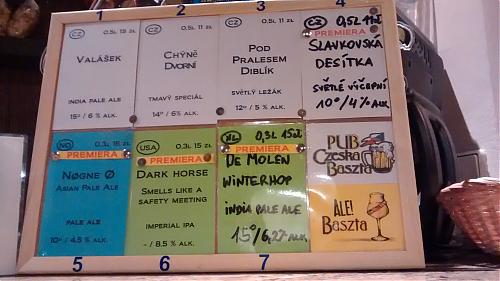 1
CZ 0,5L 15 ZŁ
VALÁŠEK
INDIA PALE ALE
15° / 6 % ALK.
2
CZ 0,5L 11 ZŁ
CHÝNĚ
DVORNÍ
TMAVÝ SPECIÁL
14° / 6% ALK.
3
CZ 0,5L 11 ZŁ
POD
PRALESEM
DIBLÍK
SVĚTLÝ LEŽÁK
12° / 5 % ALK.
4
CZ 0,5L
PREMIERA
SLAVKOVSKÁ
DESÍTKA
SVĚTLÉ VÝČEPNÍ
10°/4% ALK.
NO 0,3L 15 ZŁ
PREMIERA
NØGNE Ø
ASIAN PALE ALE
PALE ALE
10° / 4,5 % ALK.
5
USA 0,3L 15 ZŁ
PREMIERA
DARK HORSE
SMELLS LIKE A
SAFETY MEETING
IMPERIAL IPA
- / 8,5 % ALK.
6
NL 0,3L 15ZŁ
PREMIERA
DE MOLEN
WINTERHOP
INDIA PALE ALE
15°/6,2% ALK.
7
PUB
Czeska
Baszta
ALE!
Baszta